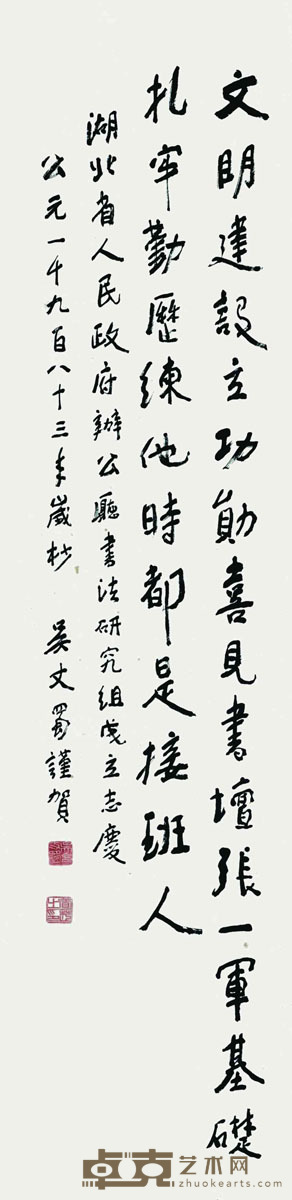 文明建設立功勛喜見書壇張一軍基礎
扎牢勤歷練他時都是接班人
湖北省人民政府辦公廳書法研究組成立志慶
公元一千九百八十三年歲杪 吳丈蜀謹賀
卓克艺术网
www.zhuokearts.com